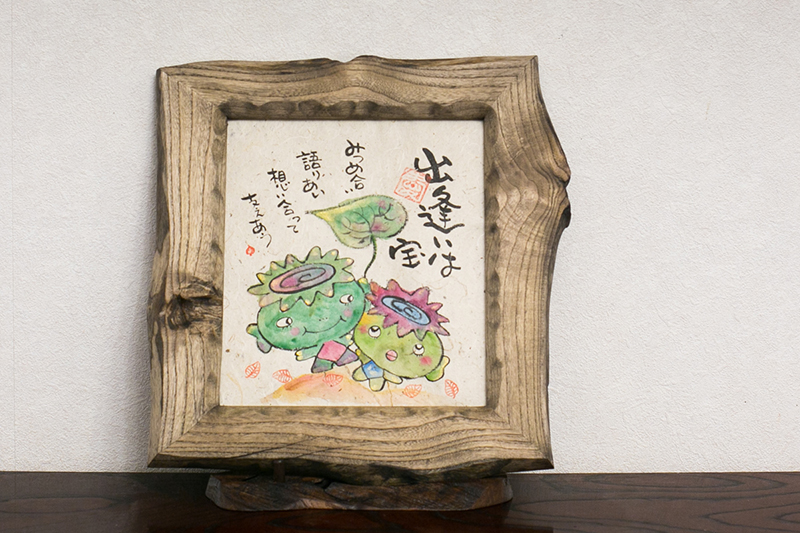 出逢いは
宝
みつめ合い
語りあい
想い合って
支えあう